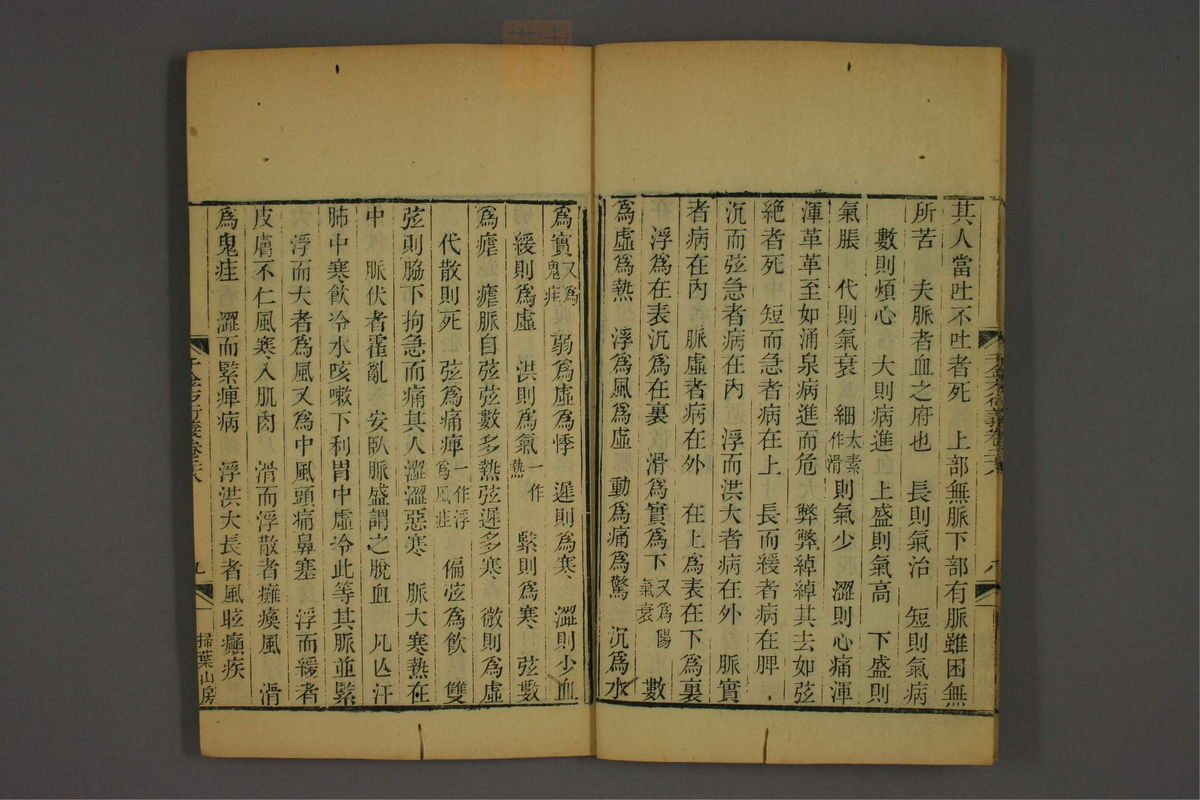 其人當吐不吐者死　上部無脈下部有脈雖困無
所苦　夫脈者血之府也　長則氣治　短則氣病
　數則煩心　大則病進　上盛則氣高　下盛則
氣脹　代則氣衰　細太素作滑則氣少　澀則心痛渾
渾革革至如涌泉病進而危　弊弊綽綽其去如弦
絕者死　短而急者病在上　長而緩者病在脾
沉而弦急者病在內　浮而洪大者病在外　脈實
者病在內　脈虛者病在外　在上為表在下為裏
　浮為在表沉為在裏　滑為實為下又為陽氣衰　數
為虛為熱　浮為風為虛　動為痛為驚　沉為水
為實又為鬼疰　弱為虛為悸　遲則為寒　澀則少血
　緩則為虛　洪則為氣一作熱　緊則為寒　弦數
為瘧　瘧脈自弦弦數多熱弦遲多寒　微則為虛
　代散則死　弦為痛痺一作浮為風疰　偏弦為飲　雙
弦則脇下拘急而痛其人澀澀惡寒　脈大寒熱在
中　脈伏者霍亂　安臥脈盛謂之脫血　凡亾汗
肺中寒飲冷水咳嗽下利胃中虛冷此等其脈並緊
　浮而大者為風又為中風頭痛鼻塞　浮而緩者
皮膚不仁風寒入肌肉　滑而浮散者癱瘓風　滑
為鬼疰　澀而緊痺病　浮洪大長者風眩癲疾
千金方衍義卷二十八　九　掃葉山房